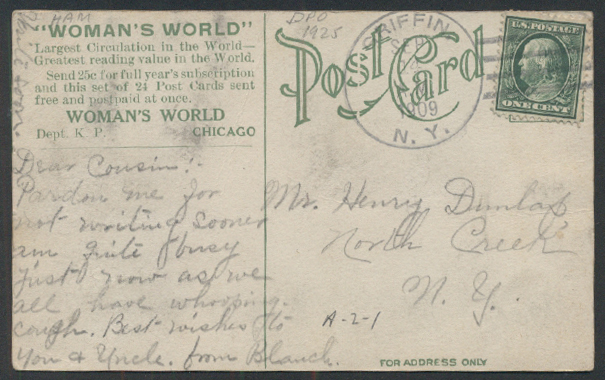 HAM
"WOMAN'S WORLD"
Largest Circulation in the World—
Greatest reading value in the World.
Send 25c for full year's subscription
and this set of 24 Post Cards sent
free and postpaid at once.
WOMAN'S WORLD
Dept. K. P. CHICAGO
DPO
1925
Post Card
GRIFFIN
SEP
1909
N. Y.
U.S. POSTAGE
ONE CENT
Dear Cousin:-
Pardon me for
not writing sooner
am quite busy
just now as we
all have whooping-
cough. Best wishes to
you & Uncle. from Blanch.
Mr. Henry Dunlap
North Creek
N. Y.
A-2-1
FOR ADDRESS ONLY